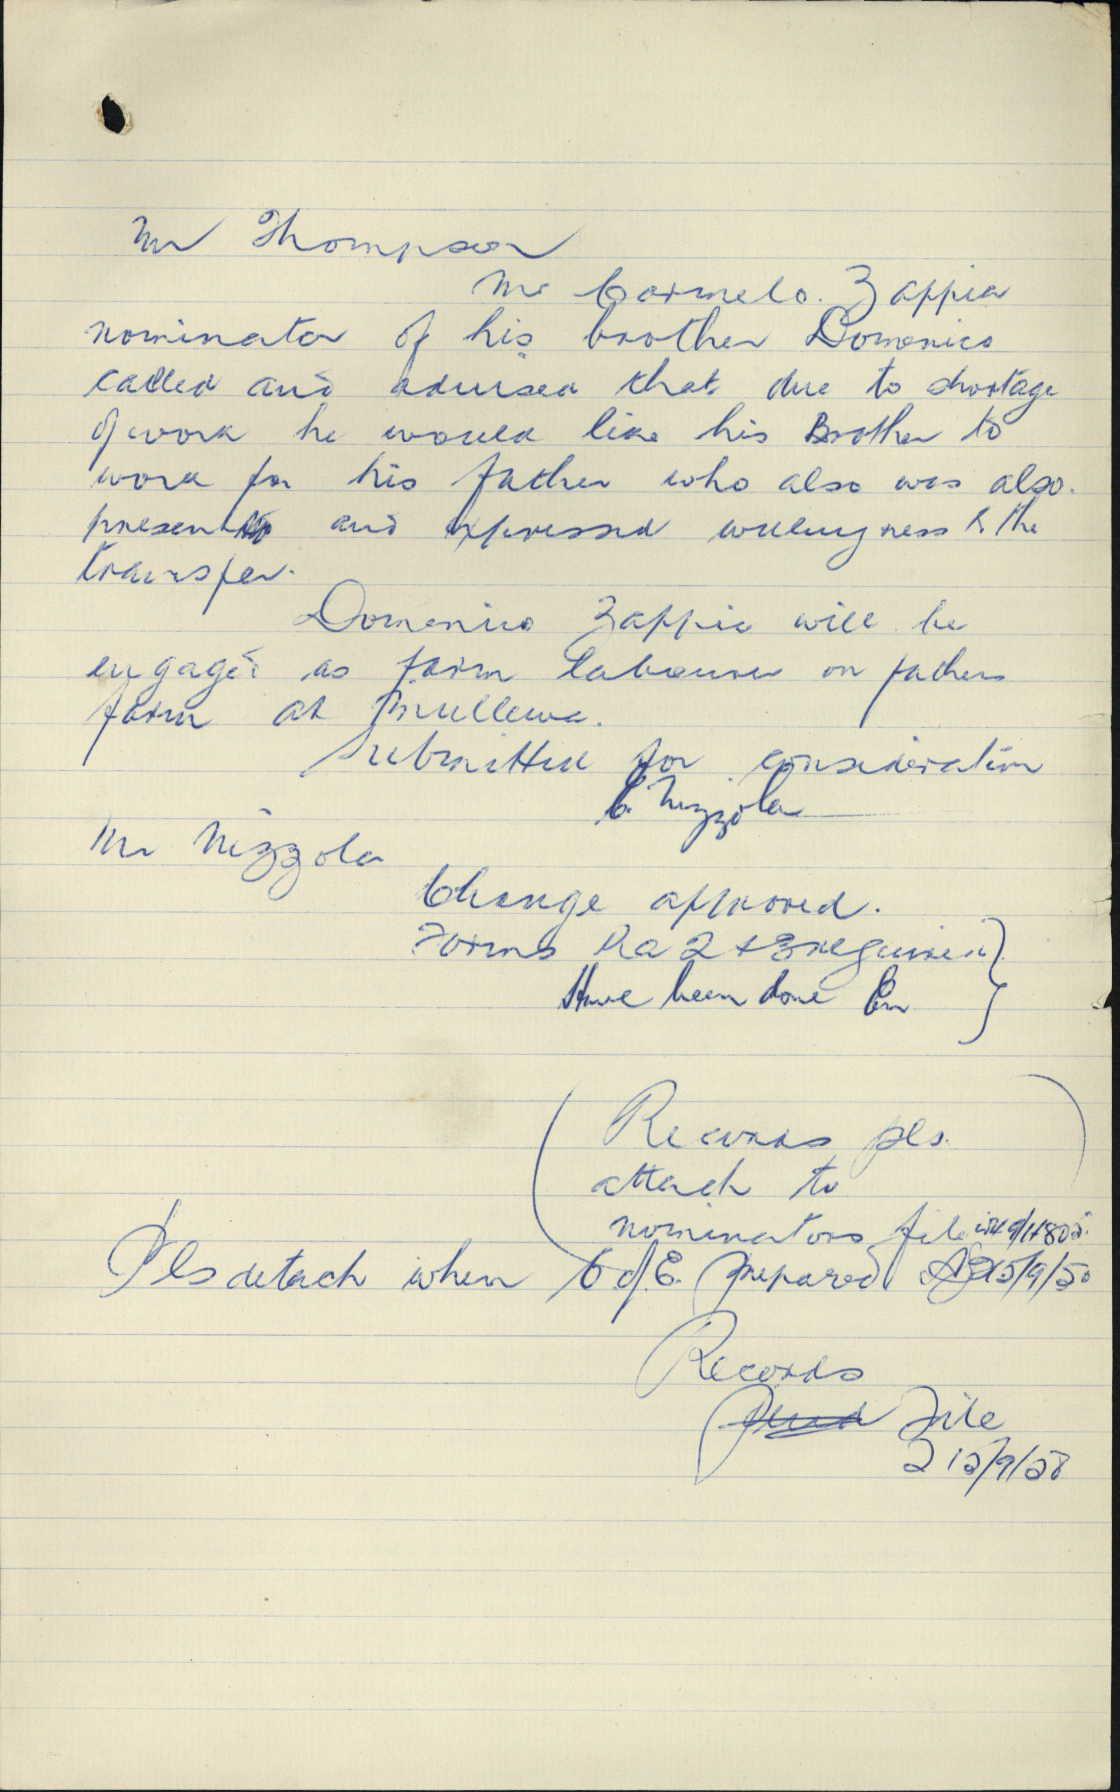 Mr Thompson
Mr Carmelo. Zappia
nominator of his brother Domenico
called and advised that due to shortage
of work he would like his Brother to
work for his father who also was also.
present and expressed willingness to the
transfer.
Domenico Zappia will be
engaged as farm labourer on fathers
farm at Mullewa.
Submitted for consideration
C. Nizzola
Mr Nizzola
Change approved.
Forms Ra 2 + 3 required
Have been done
Records pls.
attach to
nominators file
Pls detach when C of E. prepared 15/9/50
Records
File